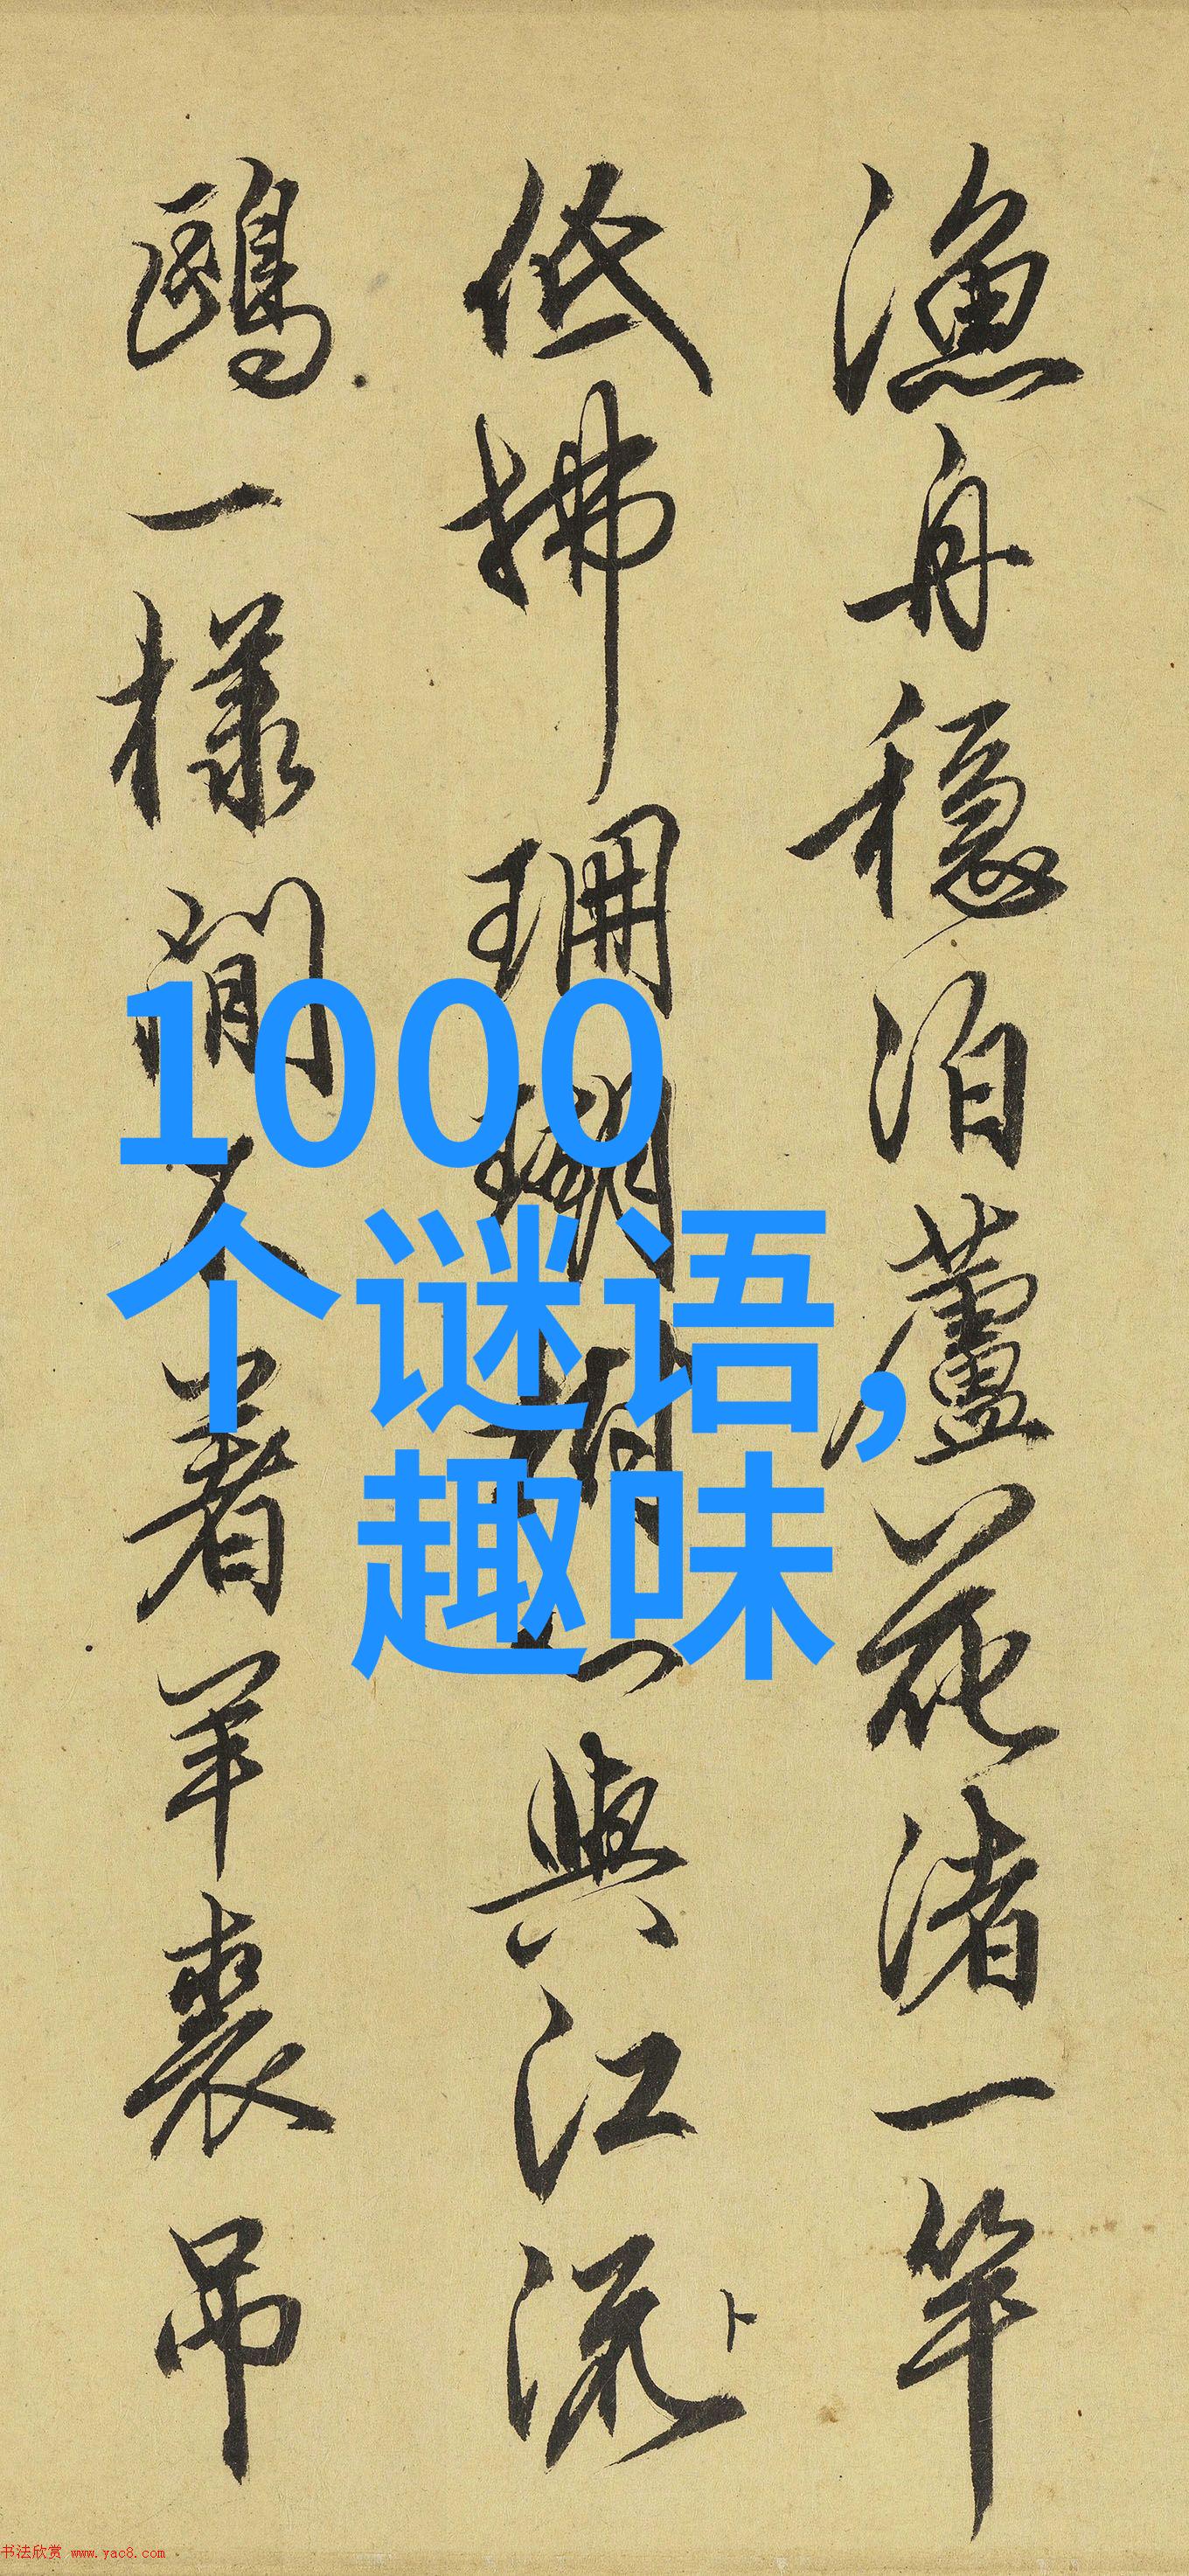 漁舟穩泊蘆花渚一竿
低拂珊瑚樹與江流
鷗一樣閒人著羊裘吊
1000
个谜语,
趣味
书法欣赏 www.yac8.com